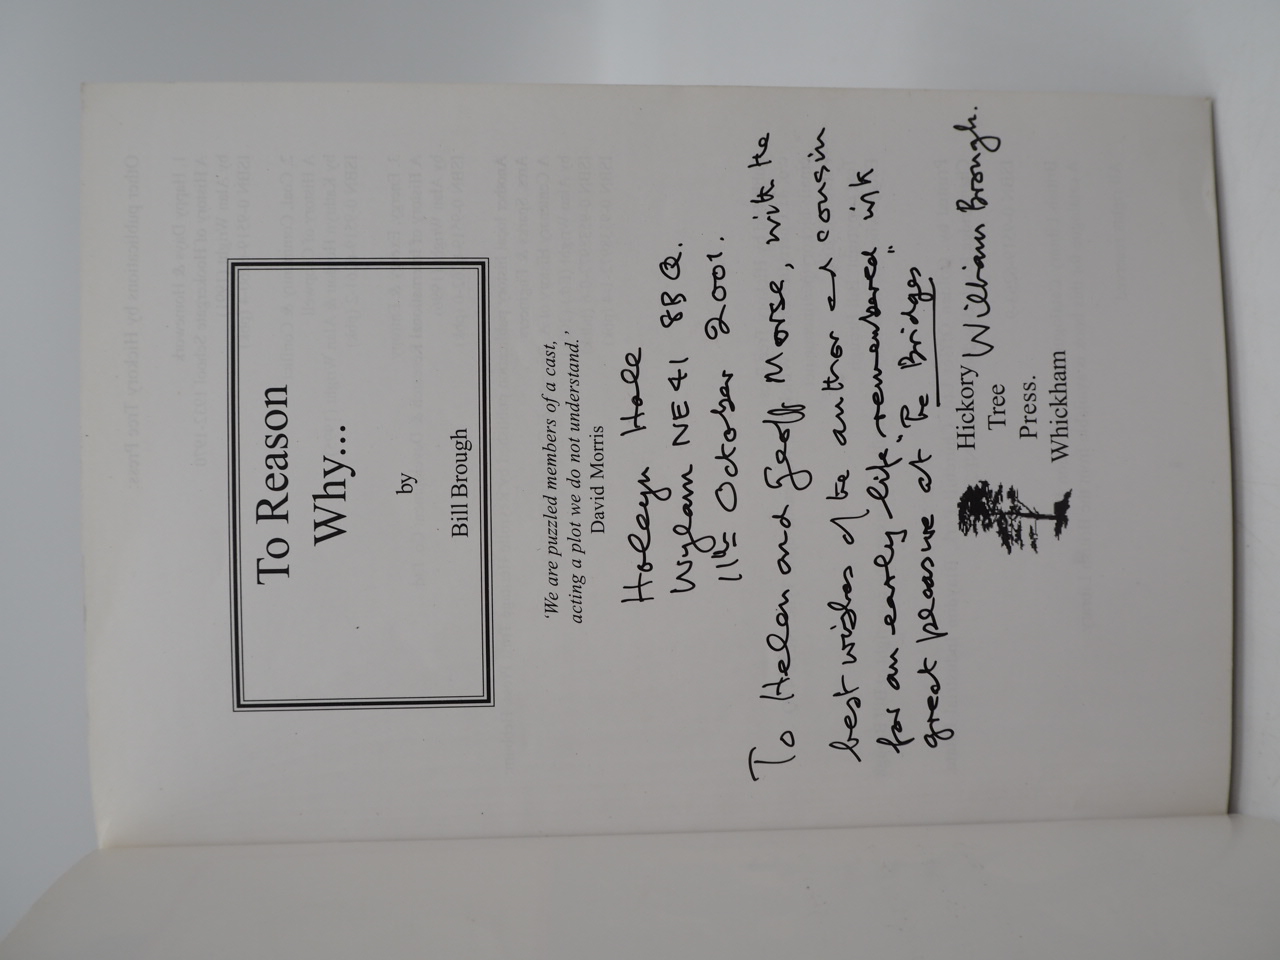 To Reason
Why...
by
Bill Brough
'We are puzzled members of a cast,
acting a plot we do not understand.'
David Morris
Holeyn Hall
Wylam NE41 8BQ.
11th October 2001.
To Helen and Geoff Morse, with the
best wishes of the author and cousin
for an early life "remembered" with
great pleasure at The Bridges
William Brough.
Hickory
Tree
Press.
Whickham